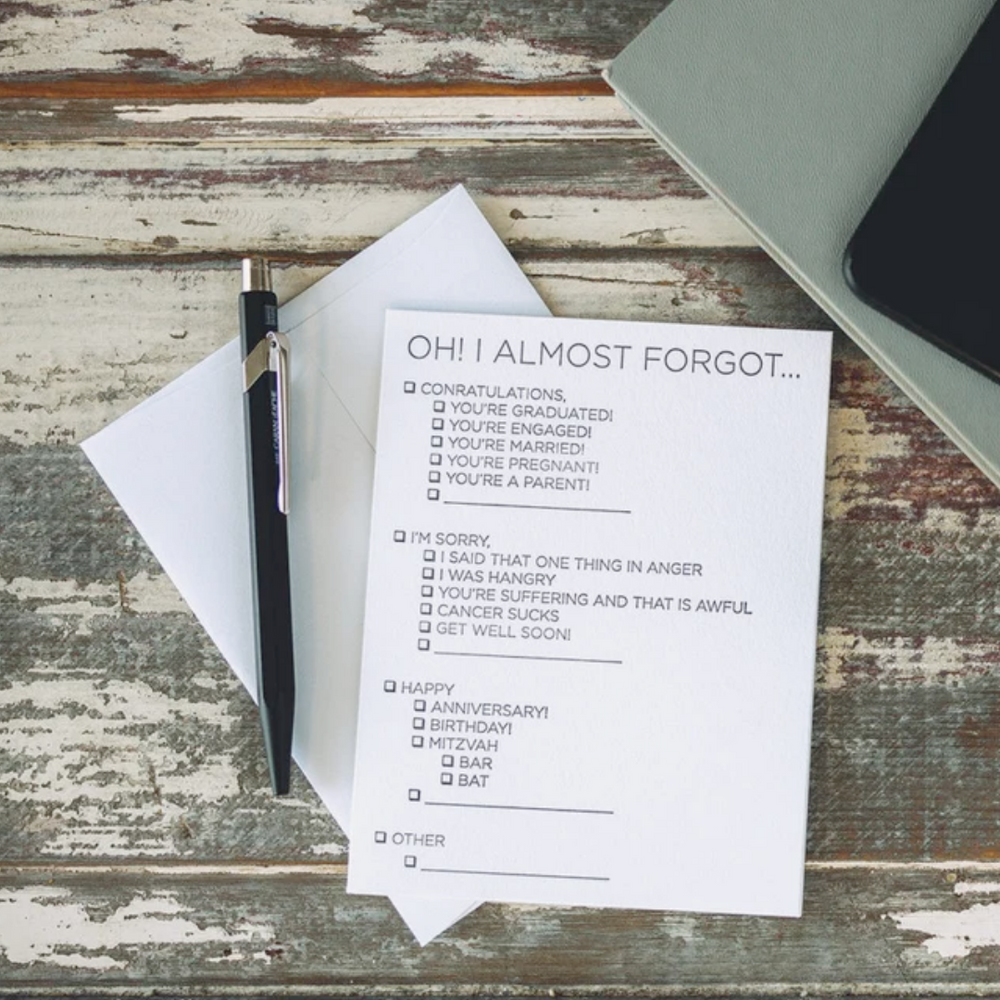 OH! I ALMOST FORGOT...
CONRATULATIONS,
YOU'RE GRADUATED!
YOU'RE ENGAGED!
YOU'RE MARRIED!
YOU'RE PREGNANT!
YOU'RE A PARENT!
I'M SORRY,
I SAID THAT ONE THING IN ANGER
I WAS HANGRY
YOU'RE SUFFERING AND THAT IS AWFUL
CANCER SUCKS
GET WELL SOON!
HAPPY
ANNIVERSARY!
BIRTHDAY!
MITZVAH
BAR
BAT
OTHER